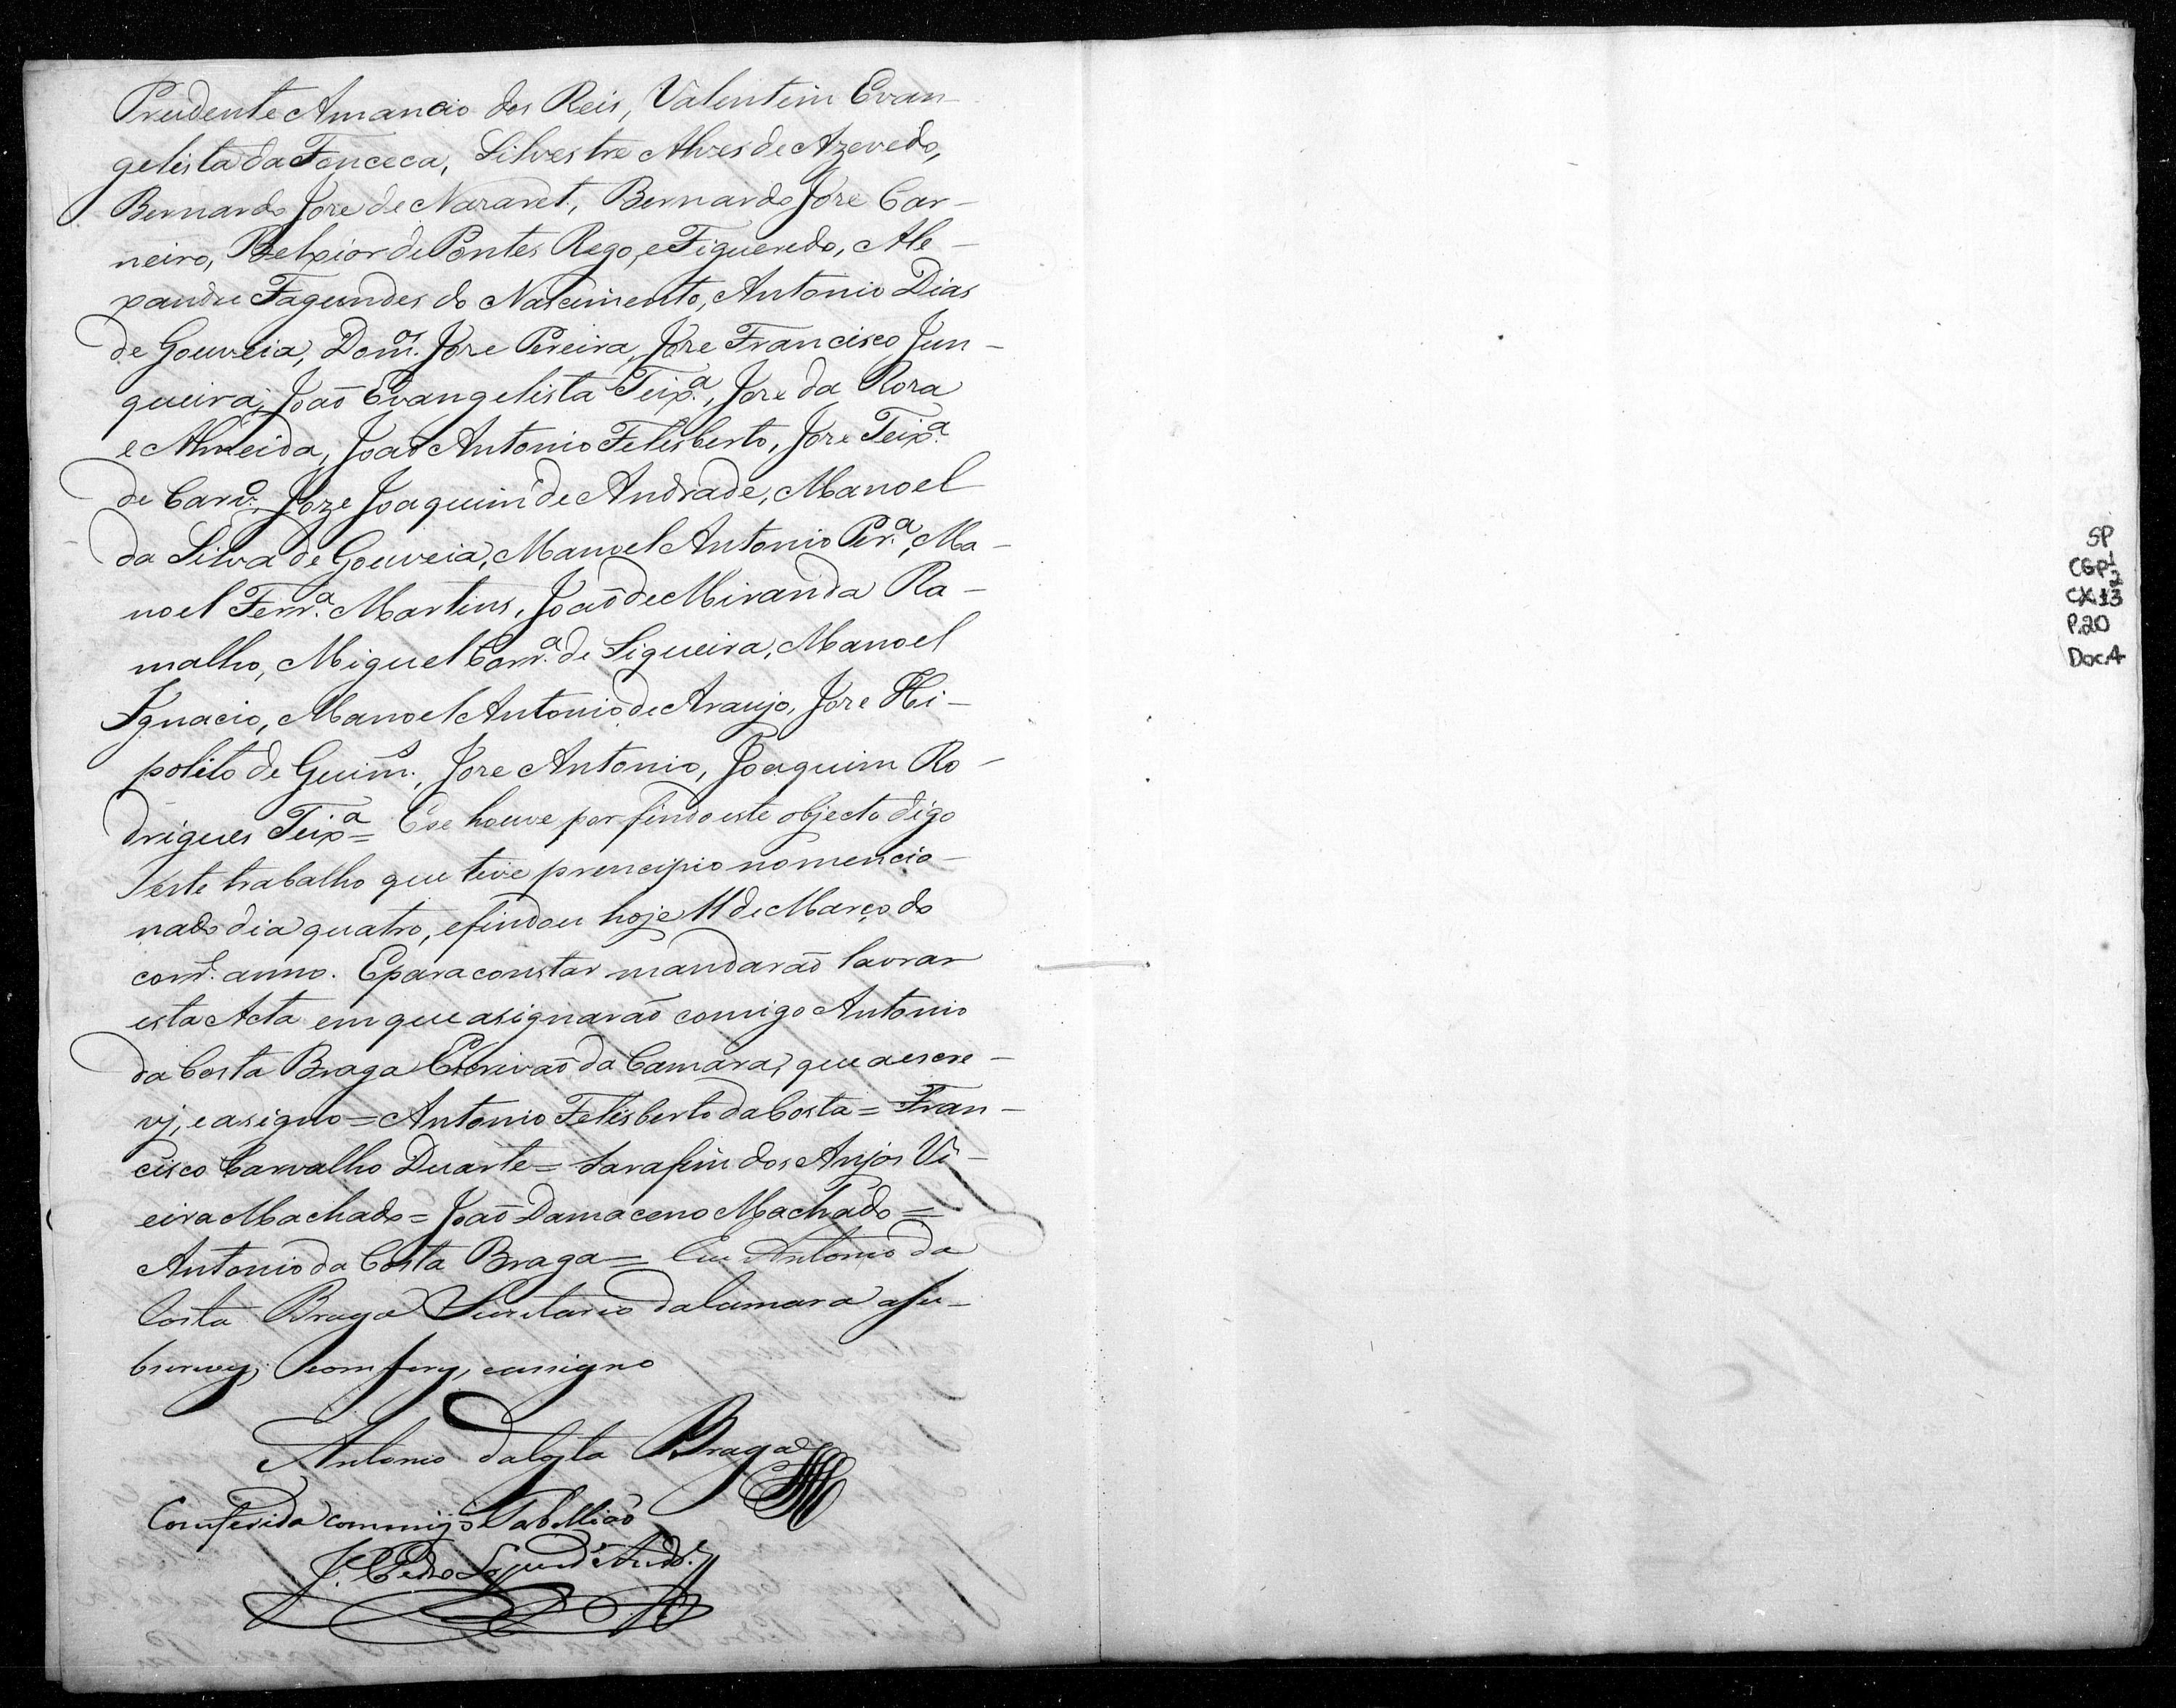 Prudente Amancio dos Reis, Valentim Evan-
gelista da Fonceca, Silvestre Alves de Azevedo,
Bernardo Joze de Nazaret, Bernardo Joze Car-
neiro, Belxior de Pontes Rego, e Figueredo, Ale-
xandre Fagundes do Nascimento, Antonio Dias
de Gouveia, Dom.os Joze Pereira, Joze Francisco Jun-
queira, João Evangelista Teix.a, Joze da Roza
e Almeida, João Antonio Felisberto, Joze Teix.a
de Carv.o, Joze Joaquim de Andrade, Manoel
da Silva de Gouveia, Manoel Antonio Per.a, Ma-
noel Ferr.a Martins, João de Miranda Ra-
malho, Miguel Corr.a de Siqueira, Manoel
Ignacio, Manoel Antonio de Araujo, Joze Hi-
polito de Guim.s, Joze Antonio, Joaquim Ro-
drigues Teix.a = E se houve por findo este objecto digo
este trabalho que teve principio no mencio-
nado dia quatro, e findou hoje 11 de Março do
corr.e anno. E para constar mandarão lavrar
esta Acta em que asignarão comigo Antonio
da Costa Braga Escrivão da Camara, que a escre-
vj, e asigno = Antonio Felisberto da Costa = Fran-
cisco Carvalho Duarte = Sarafim dos Anjos Vi-
eira Machado = João Damaceno Machado =
Antonio da Costa Braga = Eu Antonio da
Costa Braga Secretario da Camara a su-
bscrevy, comfery, e assigno
Antonio da Costa Braga
Comferida commigo Tabellião
J. Pedro
SP
CGP1
2
CX.13
P.20
Doc.4